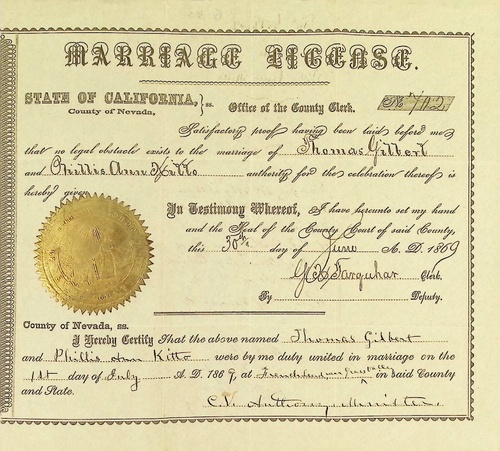 MARRIAGE LICENSE.
STATE OF CALIFORNIA, } ss.
County of Nevada,
Office of the County Clerk.
No 742
Satisfactory proof having been laid before me
that no legal obstacle exists to the marriage of Thomas Gilbert
and Phillis Ann Kitto authority for the celebration thereof is
hereby given
In Testimony Whereof, I have hereunto set my hand
and the Seal of the County Court of said County,
this 30th day of June A. D. 1869
Farquhar Clerk.
By Deputy.
County of Nevada, ss.
I Hereby Certify That the above named Thomas Gilbert
and Phillis Ann Kitto were by me duly united in marriage on the
1st day of July A. D. 1869, at near Grass Valley in said County
and State.
C.V. Anthony, Minister.